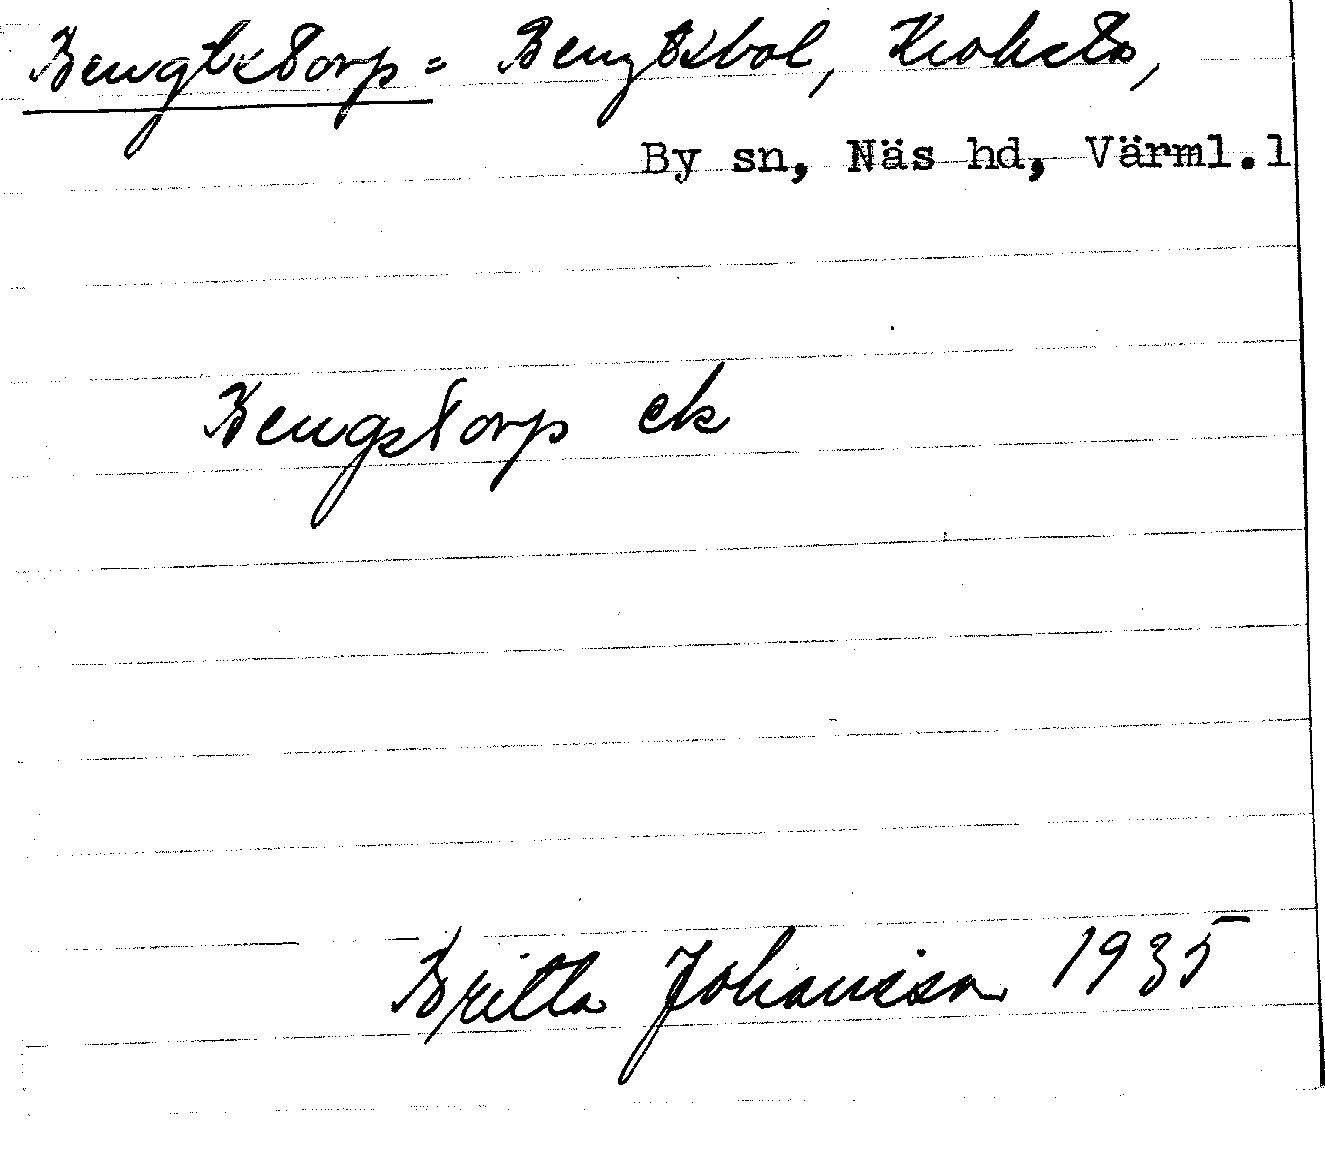 Bengtstorp = Bengtsbol, Krokstad,
By sn, Näs hd, Värml.l
Bengstorp ek
Britta Johansson 1935